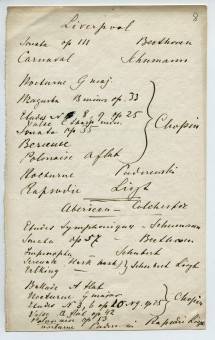 8
Liverpool
Sonata op 111 Beethoven
Carnaval Schumann
Nocturne G maj
Mazurka B minor op. 33
Etudes No 8, 9, op 25
Valse C sharp min.
Sonata op 35
Berceuse
Polonaise A flat
Chopin
Nocturne Paderewski
Rapsodie Liszt
Colchester
Etudes Symphoniques - Schumann
Sonata op 57 - Beethoven
Impromptu Schubert
Serenade (Hark hark)
Erlking
Schubert Liszt
Ballade A flat
Nocturne G major
Etudes N 3, 6 op 10. op 25
Valse A flat op 42
Polonaise op 53
Chopin
Nocturne Rapsodie Liszt